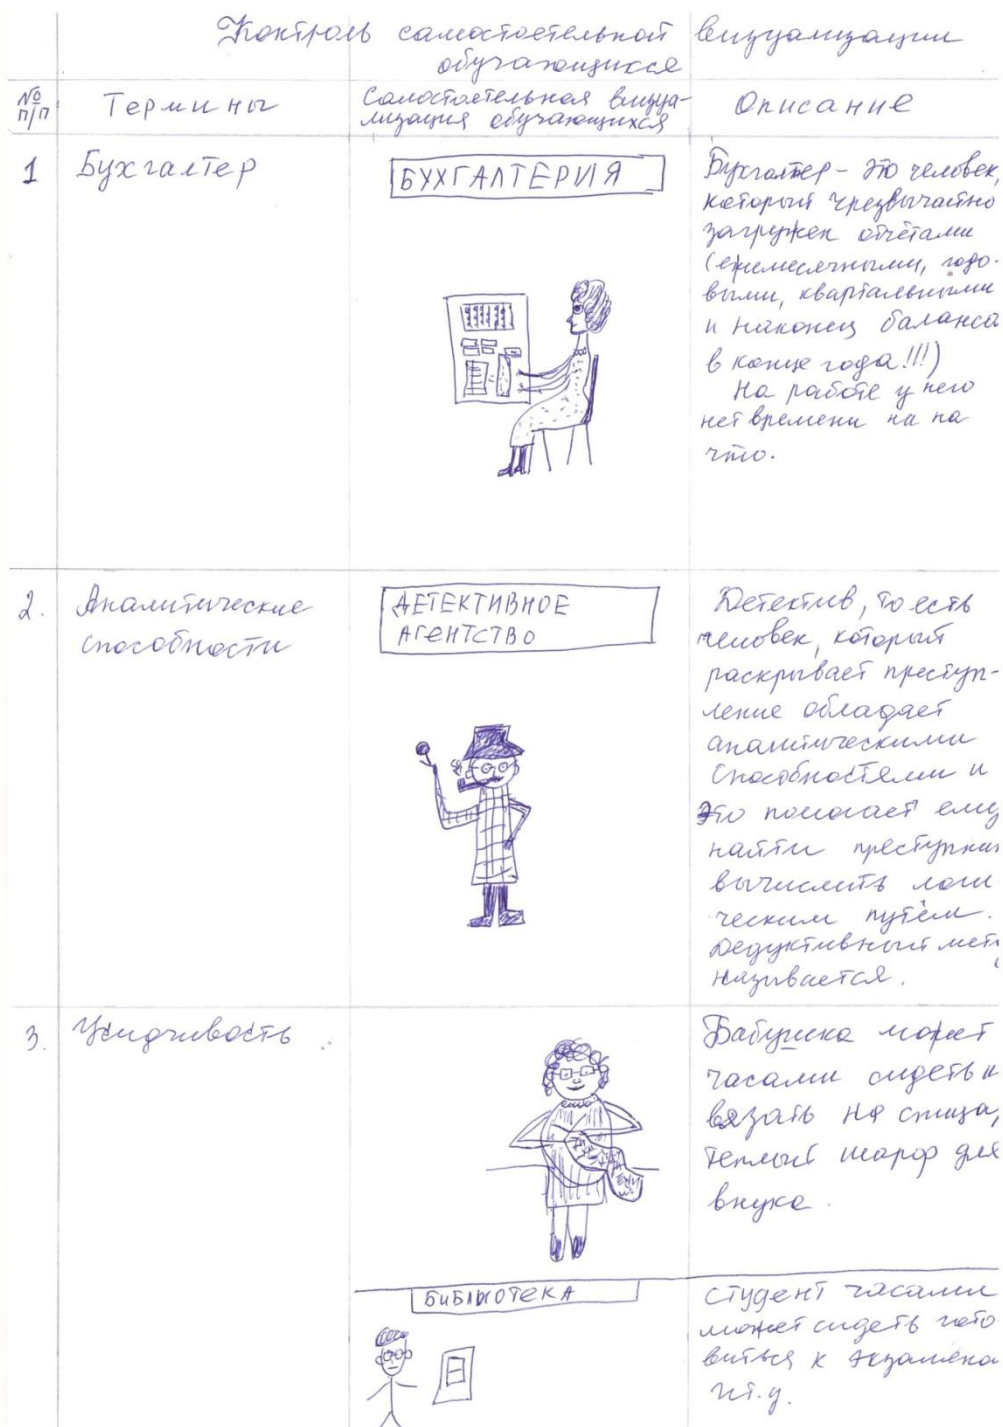 Контроль самостоятельной визуализации
обучающихся
№ п/п
Термины
Самостоятельная визуа-
лизация обучающихся
Описание
1
Бухгалтер
БУХГАЛТЕРИЯ
Бухгалтер – это человек,
который чрезвычайно
загружен отчётами
(ежемесячными, годо-
выми, квартальными
и наконец баланса
в конце года!!!)
На работе у него
нет времени ни на
что.
2.
Аналитические
способности
ДЕТЕКТИВНОЕ
АГЕНТСТВО
Детектив, то есть
человек, который
раскрывает преступ-
ление обладает
аналитическими
способностями и
это помогает ему
найти преступни
вычислить логи
ческим путём.
Дедуктивный мет
называется.
3.
Усидчивость
Бабушка может
часами сидеть и
вязать на спица,
теплый шарф для
внука.
БИБЛИОТЕКА
Студент часами
может сидеть гото
виться к экзамена
и т.д.